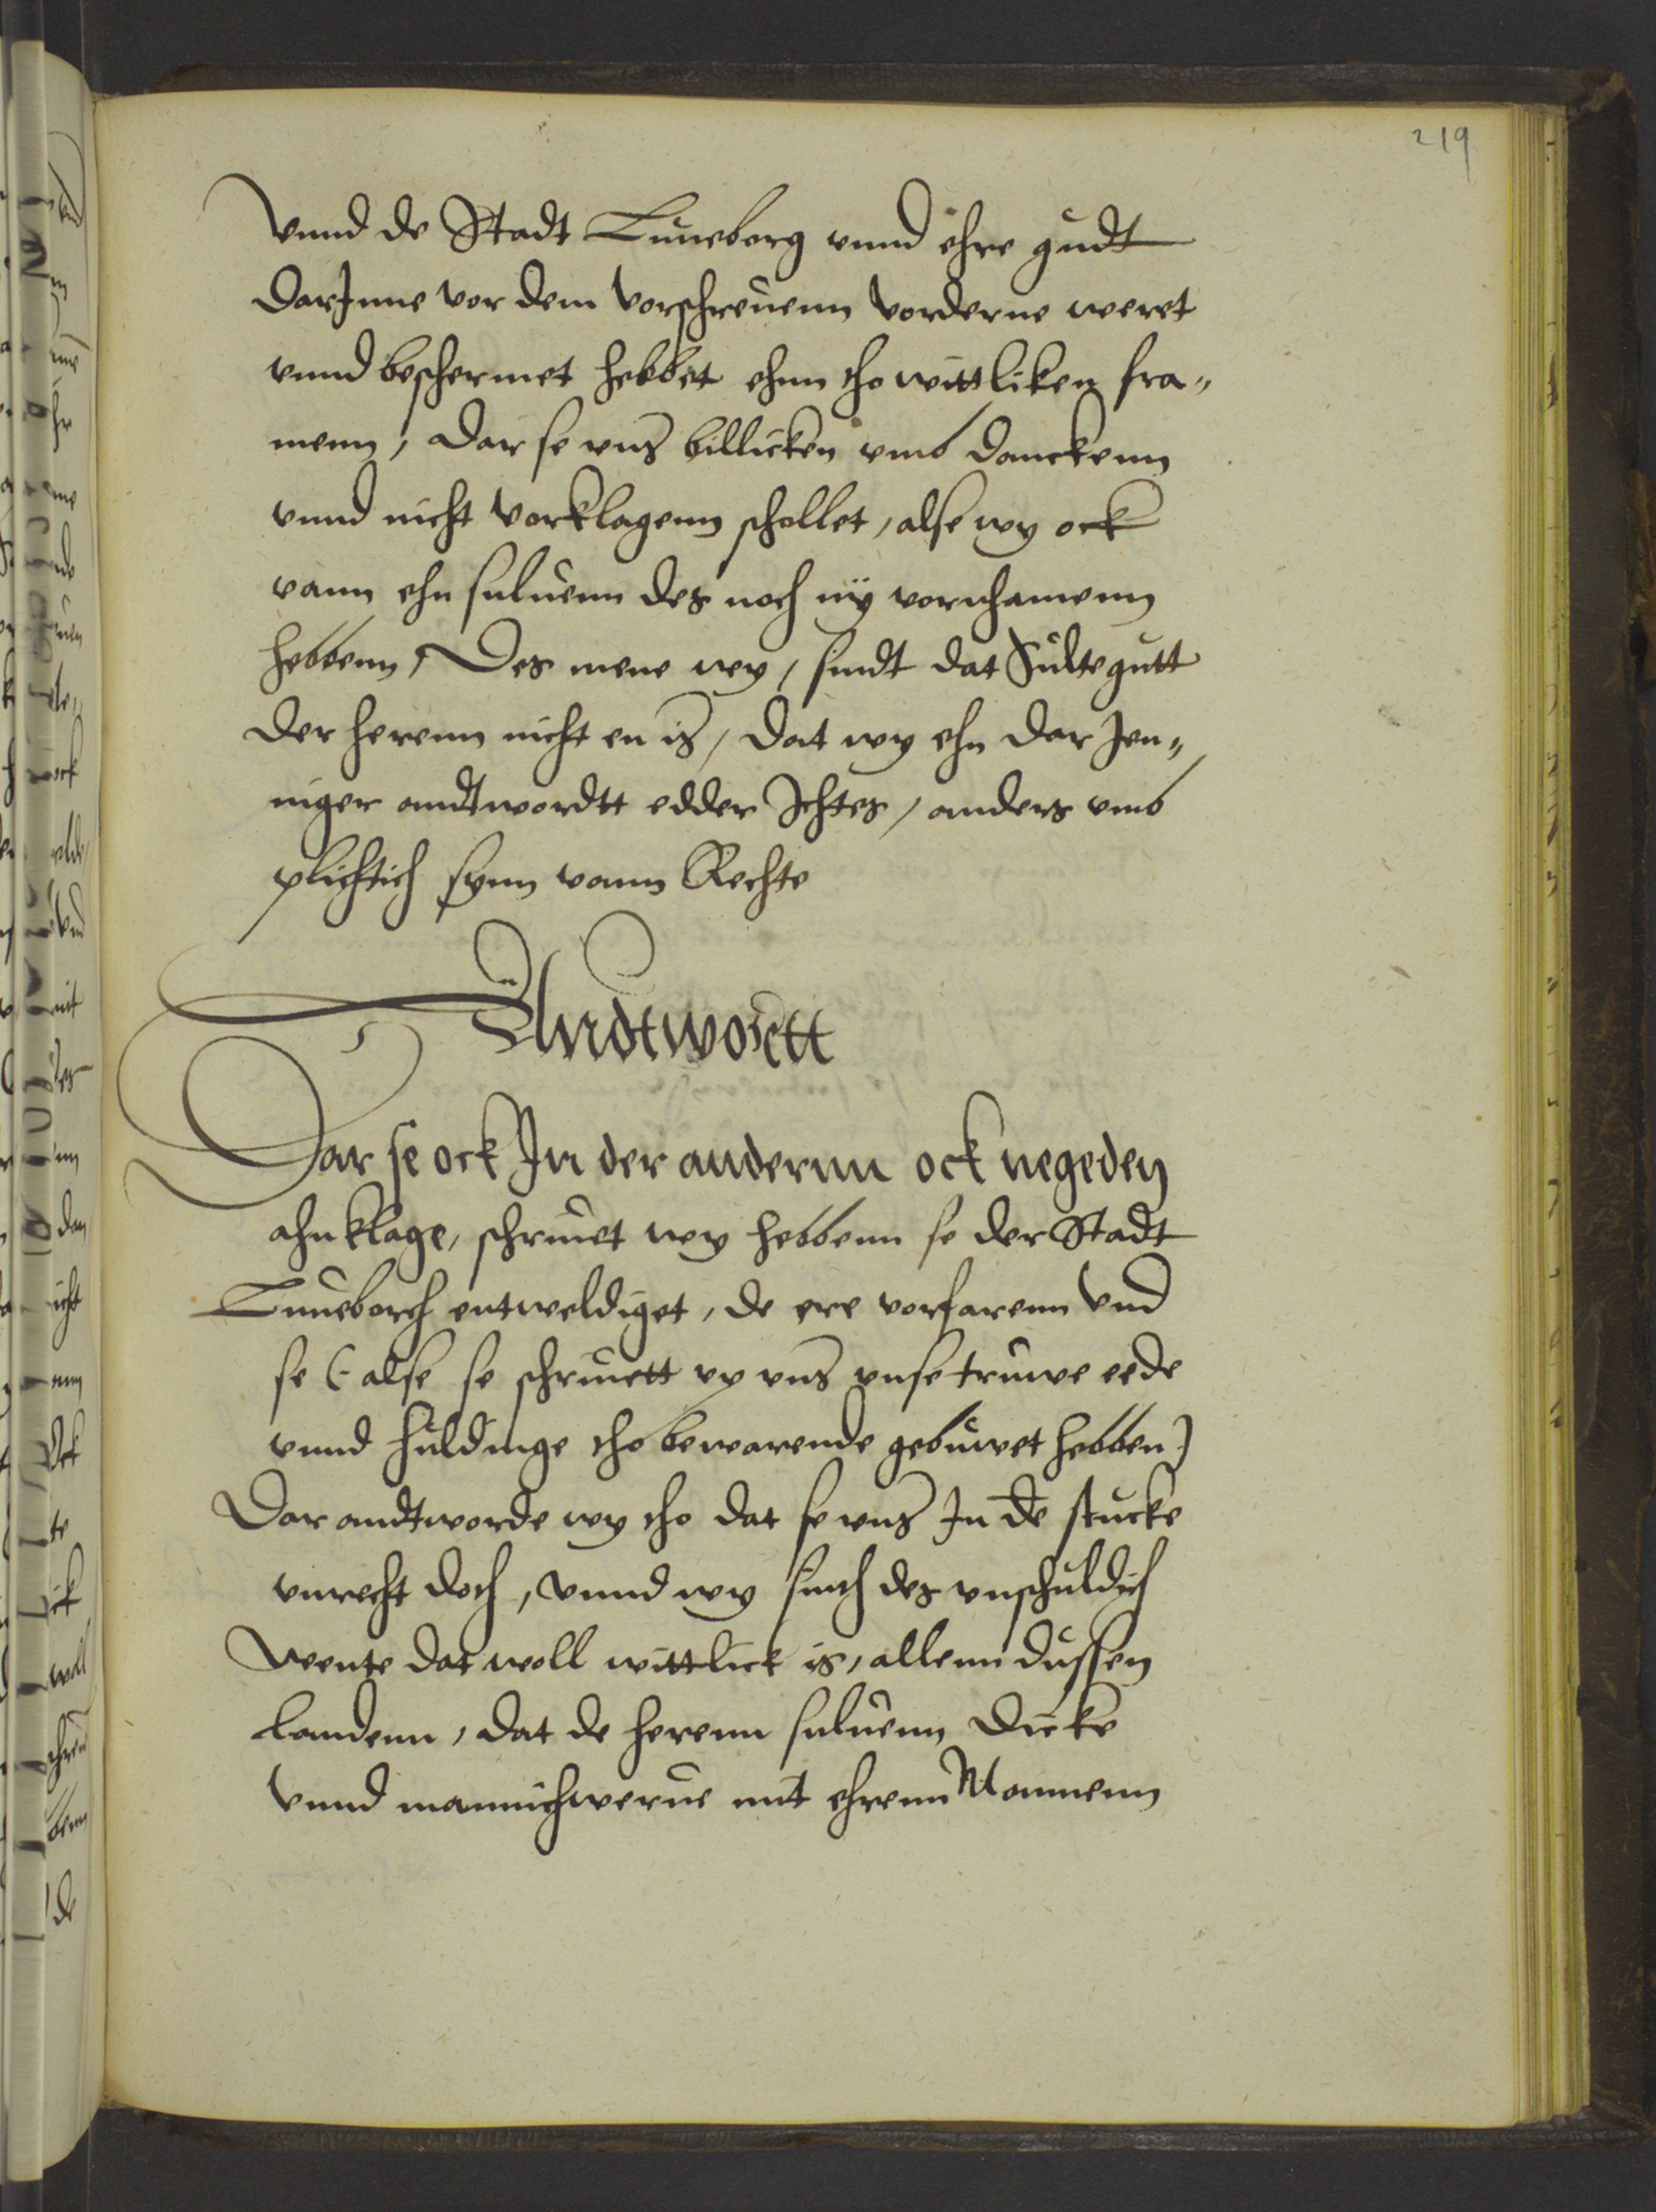 219
Vnnd de Stadt Luneborg vnnd ehre gudt
darJnne vor dem vorschreuenn vorderue weret
vnnd beschermet hebbet ehnn tho wittliken fra„
menn, dar se vns billicken vmb danckenn
vnnd nicht vorklagenn schollet, alse wy ock
vann ehn suluenn des noch ny vornhamenn
hebbenn, Des mene wy, sindt dat Sultegutt
der herenn nicht en is, dat wy ehn dar Jen„
niger andtwordtt edder Jchtes, anders vmb
plichtich synn vann Rechte
Andtwortt
Dar se ock Jn der andernn ock negeden
ahnklage, schriuet wy hebbenn se der Stadt
Luneborch entweldiget, de ere vorfarenn vnd
se (alse se schriuett vp vns vnse truwe eede
vnnd huldinge tho bewarende gebuwet hebben)
Dar andtworde wy tho dat se vns Jn de stucke
vnrecht doth, vnnd wy sinth des vnschuldich
wente dat woll wittlick is, allenn dussen
landenn, dat de herenn suluenn dicke
vnnd mannichwerue mit ehrenn Mannenn